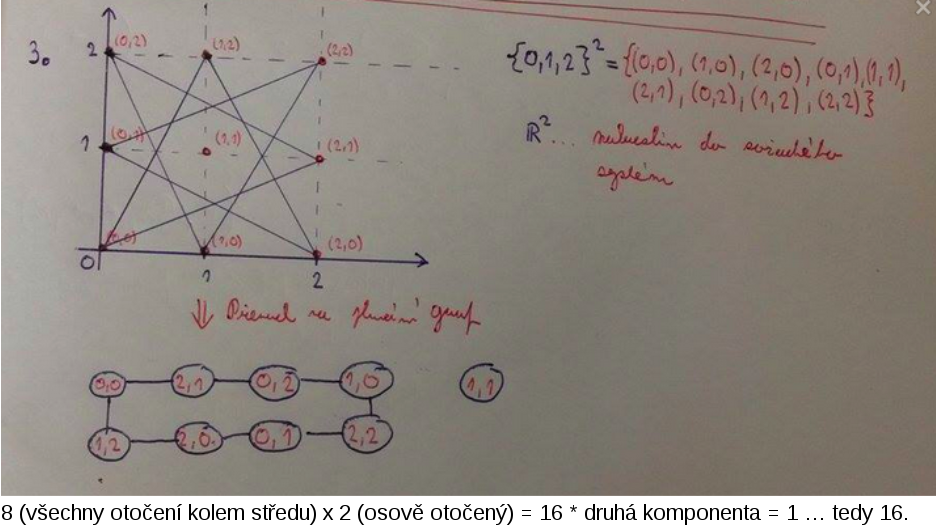 3.
2 (0,2) (1,2) (2,2)
1 (0,1) (1,1) (2,1)
(0,0) (1,0) (2,0)
0 1 2
{0,1,2}² = {(0,0), (1,0), (2,0), (0,1), (1,1),
(2,1), (0,2), (1,2), (2,2)}
ℝ² ... do
systém
⇓ graf
0,0 2,1 0,2 1,0 1,1
1,2 2,0 0,1 2,2
8 (všechny otočení kolem středu) x 2 (osově otočený) = 16 * druhá komponenta = 1 ... tedy 16.